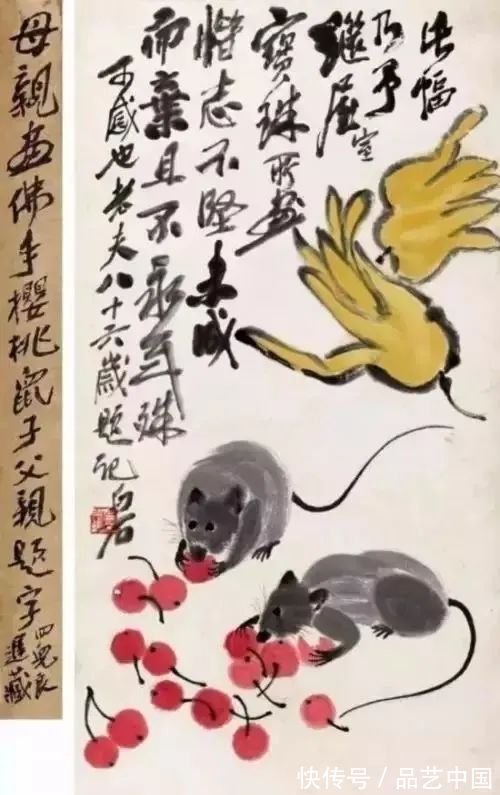 此幅
乃予室
繼屋
寶珠所畫
惜志不堅未成
而棄且不永年殊
可感也老夫八十六歲題記白石
母親畫佛手櫻桃鼠子父親題字
四兒良
遲藏
快传号 / 品艺中国